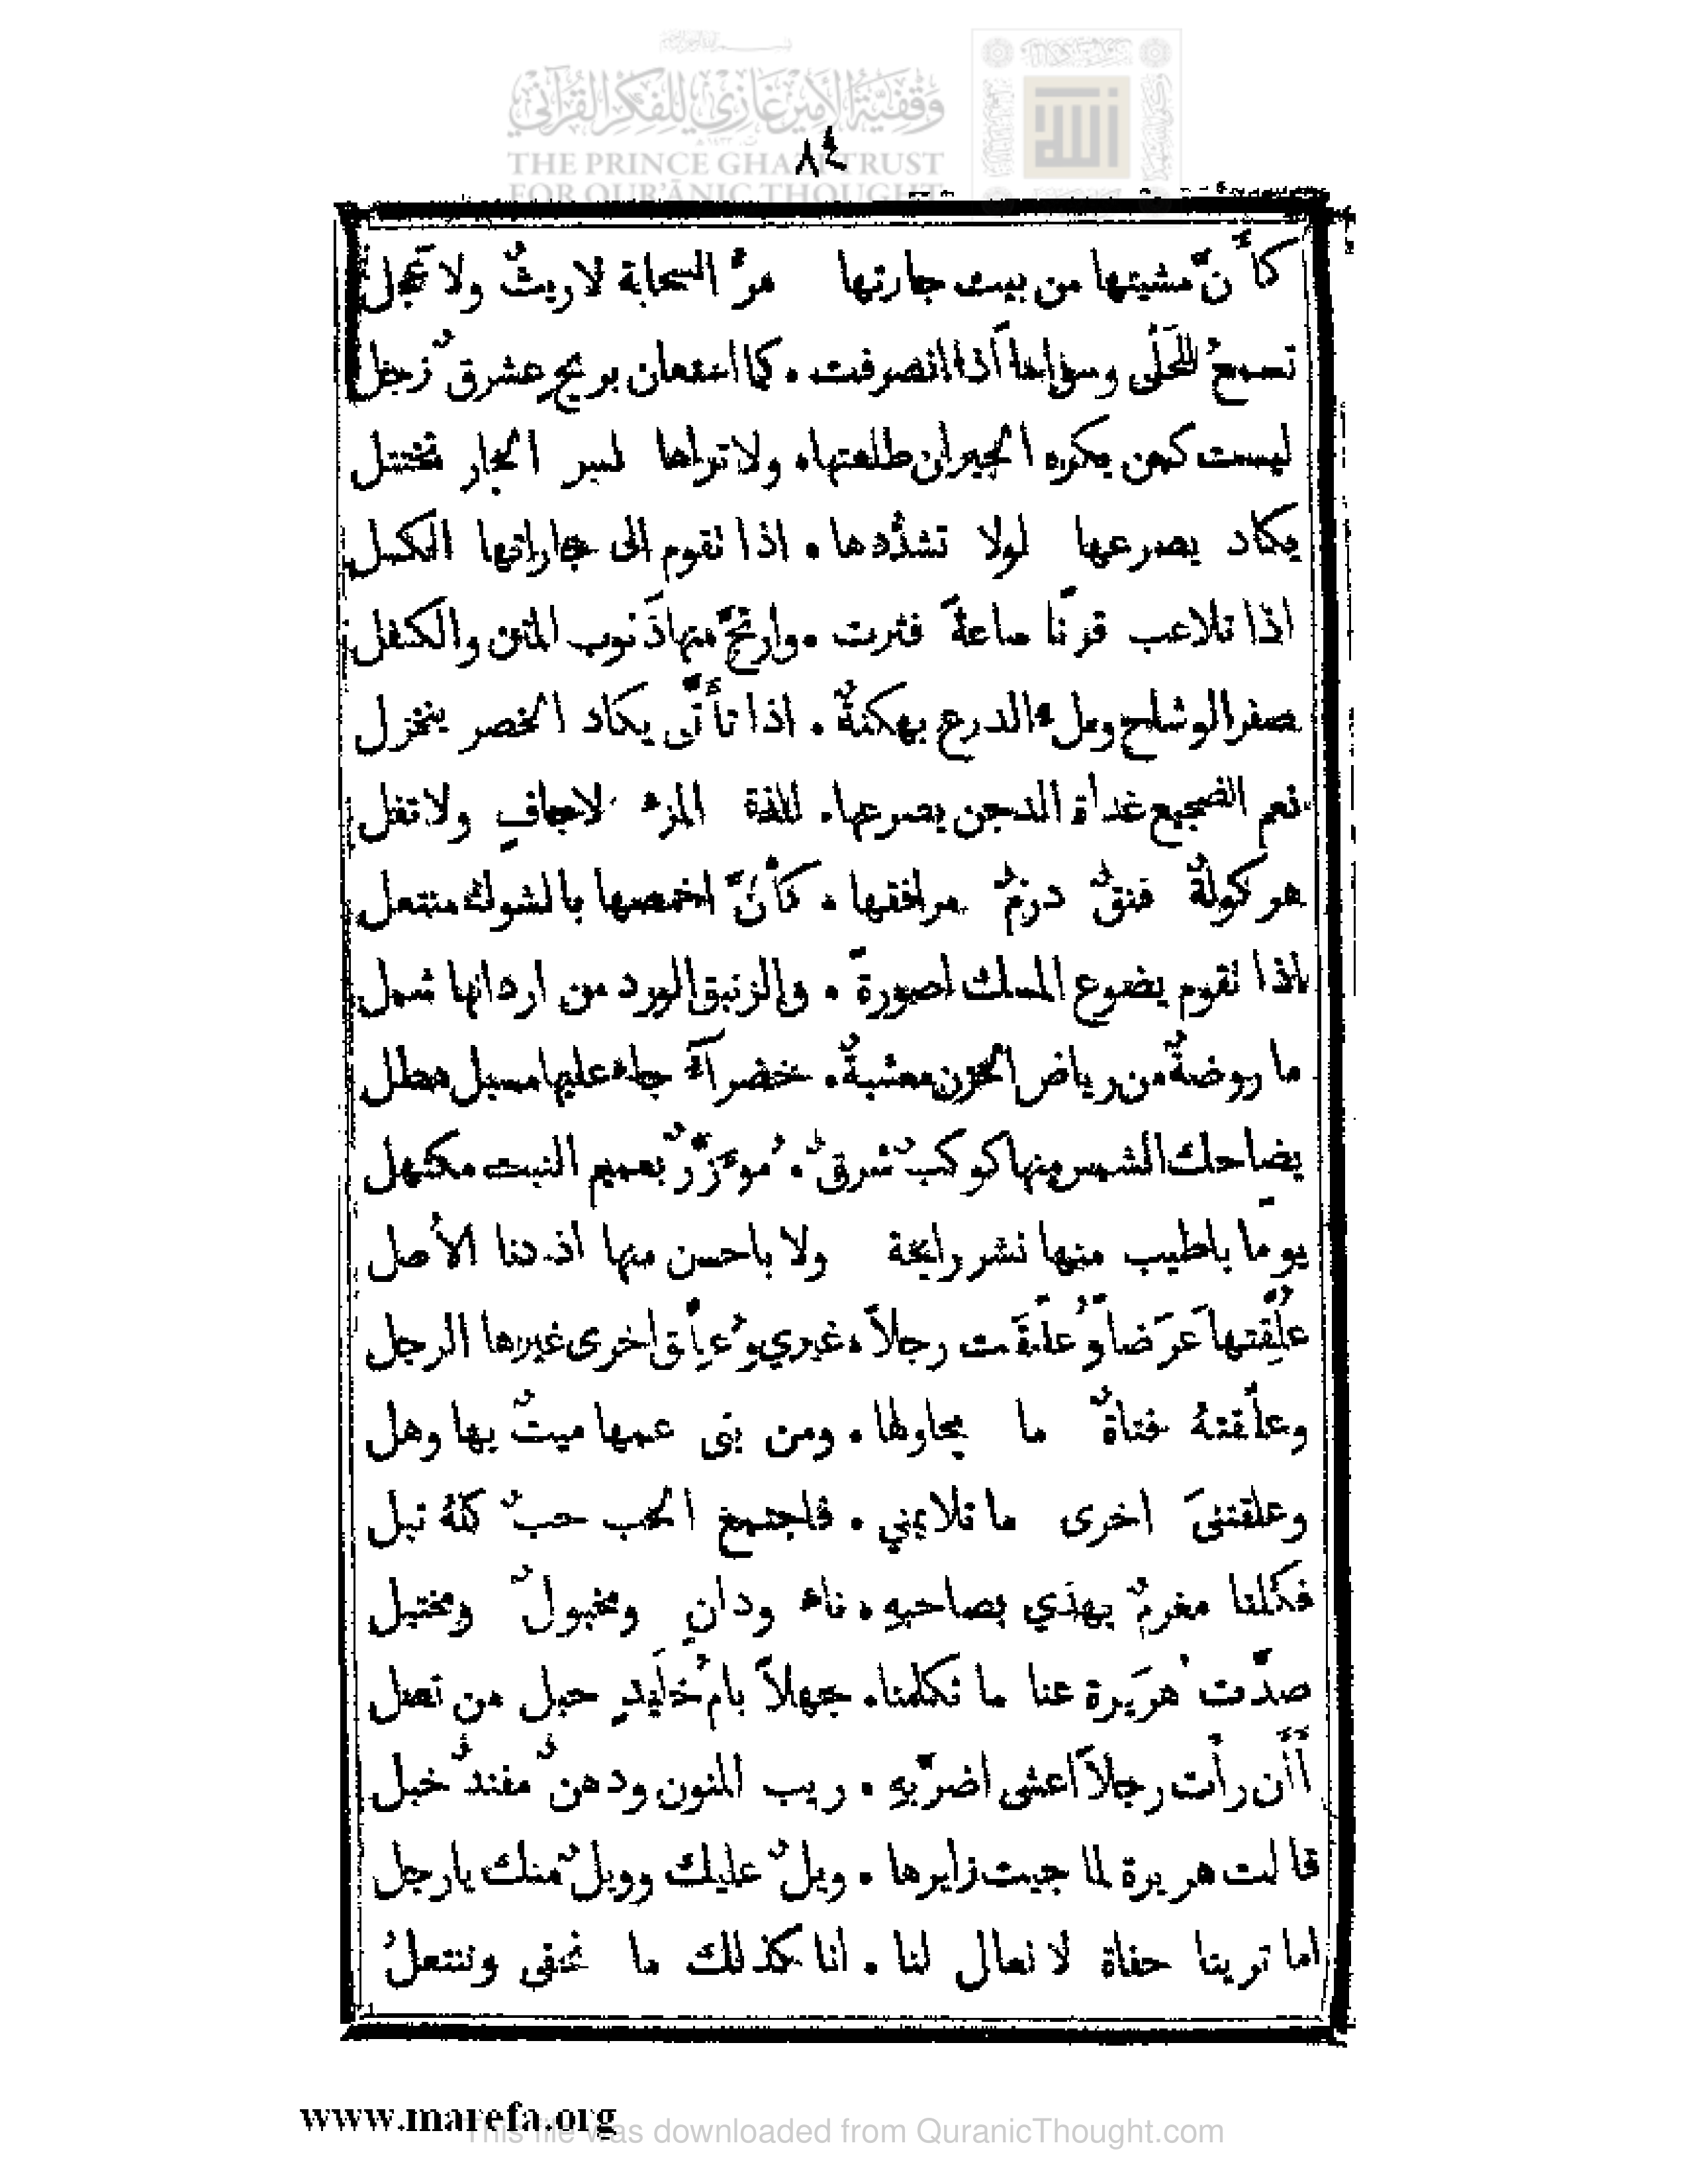 وقفية الأمير غازي للفكر القرآني
THE PRINCE GHAZI TRUST
FOR QUR'ĀNIC THOUGHT
٨٤
كأَنَّ مشيتها من بيت جارتها مرُّ السحابة لا ريثٌ ولا عجل
تسمعُ للحَلْى وسواسا اذا انصرفت . كما استعان بريح عشرقٌ زجل
ليست كمن يكره الجيران طلعتها . ولا تراها لسر الجار تختتل
يكاد يصرعها لولا تشدُّدها . اذا تقوم الى جاراتها الكسل
اذا تلاعب قرنًا ساعةً فترت . وارتجَّ منها ذَنوب المتن والكفل
صفر الوشاح وملء الدرع بهكنةٌ . اذا تأتَّى يكاد الخصر ينخزل
نعم الضجيع غداة الدجن يصرعها . للذة المرء لا جافٍ ولا تفل
هركولةٌ فنقٌ درمٌ مرافقها . كأنَّ اخمصها بالشوك منتعل
اذا تقوم يضوع المسك اصورةً . والزنبق الورد من اردانها شمل
ما روضةٌ من رياض الحزن معشبةٌ . خضرآء جاء عليها مسبل هطل
يضاحك الشمس منها كوكبٌ شرقٌ . مُؤزَّرٌ بعميم النبت مكتهل
يومًا باطيب منها نشر رايحة ولا باحسن منها اذ دنا الأصل
عُلِّقتها عَرَضاً وعُلِّقَت رجلاً . غيري وعُلِّق اخرى غيرها الرجل
وعلّقتهُ فتاةٌ ما يحاولها . ومن بنى عمها ميتٌ بها وهل
وعلقتنىَ اخرى ما تلايمني . فاجتمع الحب حبٌ كلهُ تبل
فكلنا مغرمٌ يهذي بصاحبهِ . ناء ودانٍ ومخبولٌ ومختبل
صدَّت هُرَيرة عنا ما تكلمنا . جهلاً بامُ خُلَيدٍ حبل من تصل
أَأَن رأَت رجلاً اعشى اضرَّ بهِ . ريب المنون ودهنٌ مفندٌ خبل
قالت هريرة لما جيت زايرها . ويلٌ عليك وويلٌ منك يا رجل
اما ترينا حفاة لا نعال لنا . انا كذلك ما نحفى وننتعلُ
www.marefa.org
This file was downloaded from QuranicThought.com